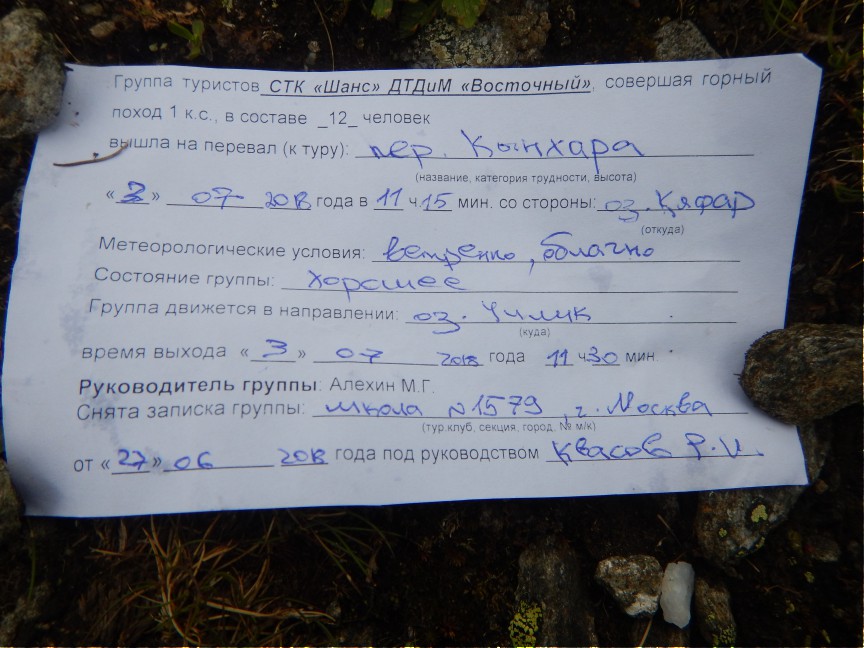 Группа туристов СТК «Шанс» ДТДиМ «Восточный», совершая горный
поход 1 к.с., в составе _12_ человек
вышла на перевал (к туру): пер. Кынхара
(название, категория трудности, высота)
«3» 07 2018 года в 11 ч 15 мин. со стороны: оз. Кяфар
(откуда)
Метеорологические условия: ветренно, облачно
Состояние группы: хорошее
Группа движется в направлении: оз. Чилик
(куда)
время выхода «3» 07 2018 года 11 ч 30 мин.
Руководитель группы: Алехин М.Г.
Снята записка группы: школа №1579, г. Москва
(тур.клуб, секция, город, № м/к)
от «27» 06 2018 года под руководством Квасова Р.И.